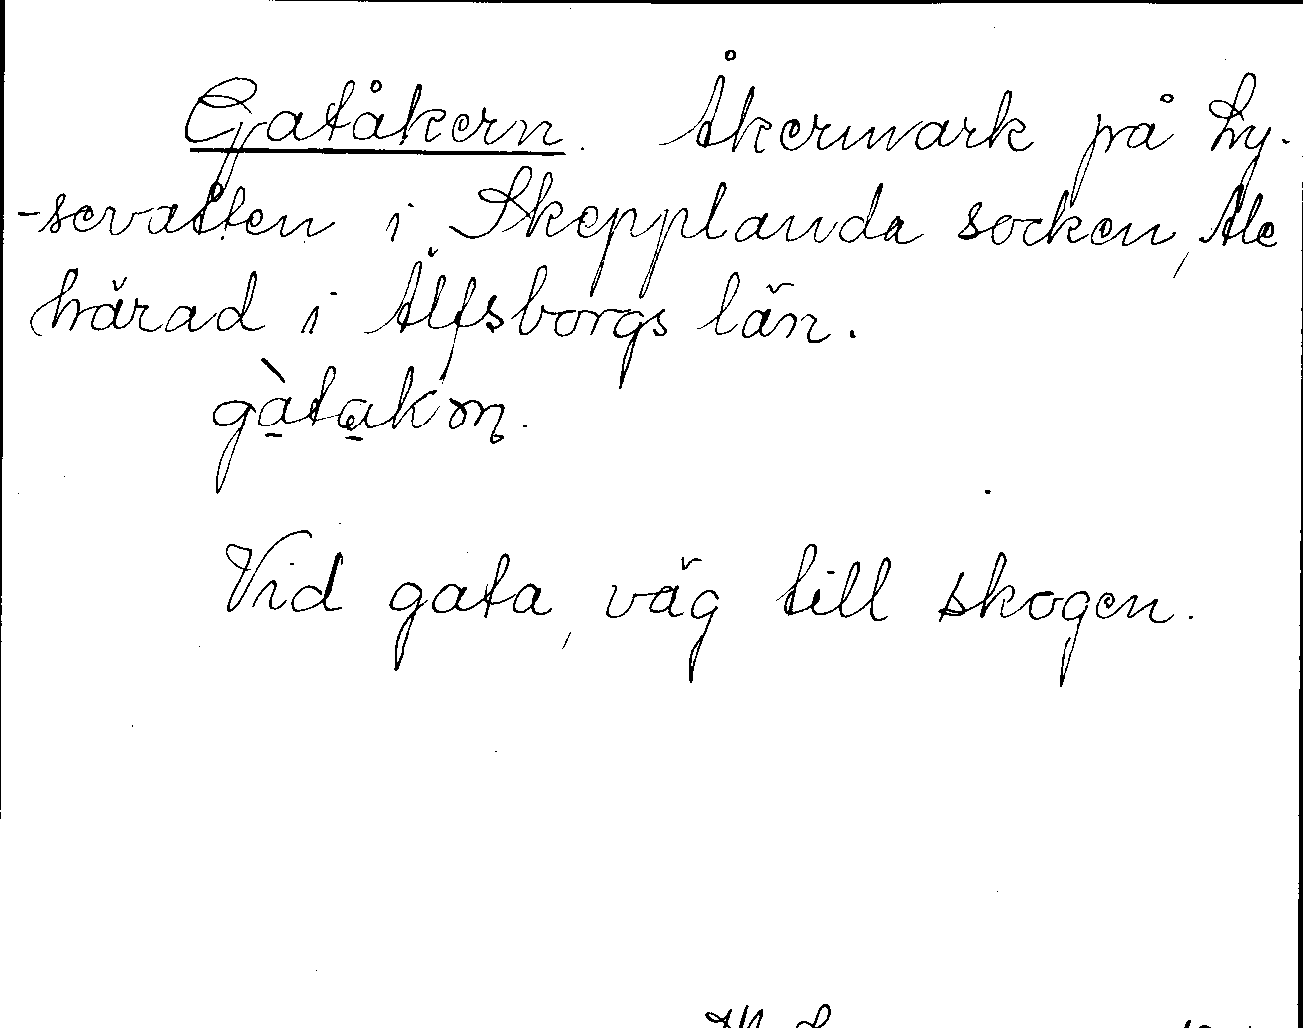 Gatåkern. Åkermark på Ly-
-sevatten i Skepplanda socken, Ale
härad i Älfsborgs län.
gàtakņ.
Vid gata, väg till skogen.